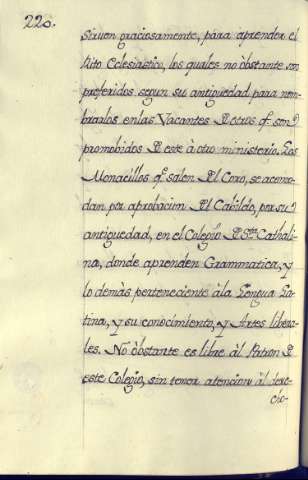 220.
sirven graciosamente, para aprender el
Rito Eclesiastico, los quales no òbstante son
preferidos segun su antiguedad para nom-
brarlos en las Vacantes D otros qe. son
promobidos D este à otro ministerio. Los
Monacillos qe. salen Del Coro, se acomo-
dan por aprobacion Del Cabildo, por su
antiguedad, en el Colegio D Sta. Cathali-
na, donde aprenden Grammatica, y
lo demàs perteneciente àla Lengua La-
tina, y su conocimiento, y Artes libera-
les. No òbstante es libre àl Patron D
este Colegio, sin tener atencion àl dere-
cho-